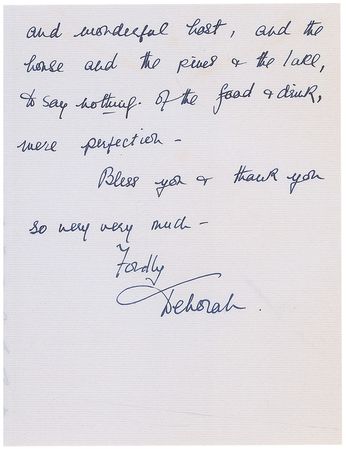 and wonderful host, and the
house and the pines & the lake,
to say nothing of the food & drink,
were perfection –
Bless you & thank you
so very very much –
Fondly
Deborah.